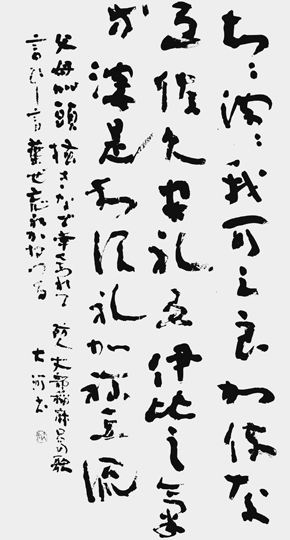 知〻波〻我可之良加伎奈
弖佐久安礼弖伊比之氣
等波是和須礼加祢豆流
父母が頭掻きなで幸くあれて 防人 丈部稲麻呂の歌
言ひし言葉ぜ忘れかねつる 書